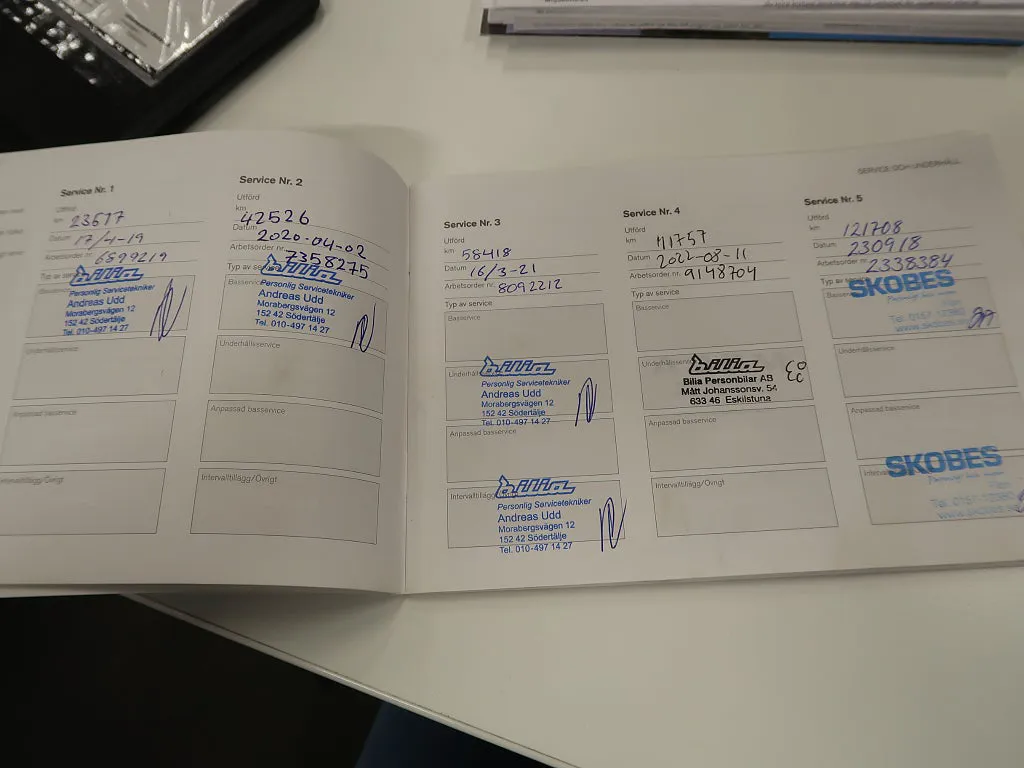 SERVICE OCH UNDERHÅLL
Service Nr. 1
Utförd
km 23577
Datum 17/4-19
Arbetsorder nr. 6899219
Typ av
bilia
Personlig Servicetekniker
Andreas Udd
Morabergsvägen 12
152 42 Södertälje
Tel. 010-497 14 27
Underhållsservice
Anpassad basservice
Intervalltillägg/Övrigt
Service Nr. 2
Utförd
km
42526
Datum
2020-04-02
Arbetsorder nr.
7358275
Typ av
Basservice
bilia
Personlig Servicetekniker
Andreas Udd
Morabergsvägen 12
152 42 Södertälje
Tel. 010-497 14 27
Underhållsservice
Anpassad basservice
Intervalltillägg/Övrigt
Service Nr. 3
Utförd
km 58418
Datum 16/3-21
Arbetsorder nr. 8092212
Typ av service
Basservice
bilia
Personlig Servicetekniker
Andreas Udd
Morabergsvägen 12
152 42 Södertälje
Tel. 010-497 14 27
Anpassad basservice
Intervalltillägg
bilia
Personlig Servicetekniker
Andreas Udd
Morabergsvägen 12
152 42 Södertälje
Tel. 010-497 14 27
Service Nr. 4
Utförd
km 71757
Datum 2022-08-11
Arbetsorder nr. 9148704
Typ av service
Basservice
bilia
Bilia Personbilar AB
Mått Johanssonsv. 54
633 46 Eskilstuna
Anpassad basservice
Intervalltillägg/Övrigt
Service Nr. 5
Utförd
km 121708
Datum 230918
Arbetsorder nr. 2338384
Typ av
SKOBES
www.skobes.
Underhållsservice
Anpassad basservice
SKOBES